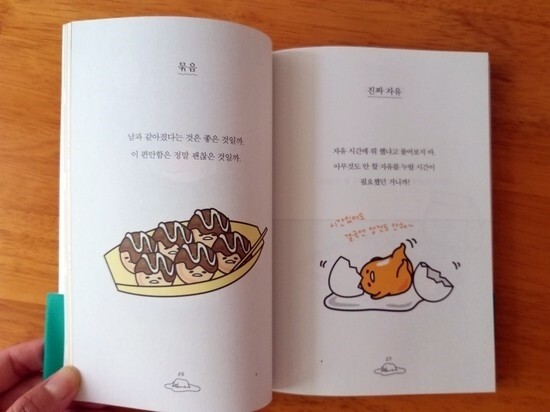 묶음
남과 같아졌다는 것은 좋은 것일까.
이 편안함은 정말 괜찮은 것일까.
진짜 자유
자유 시간에 뭐 했냐고 물어보지 마.
아무것도 안 할 자유를 누릴 시간이
필요했던 거니까!